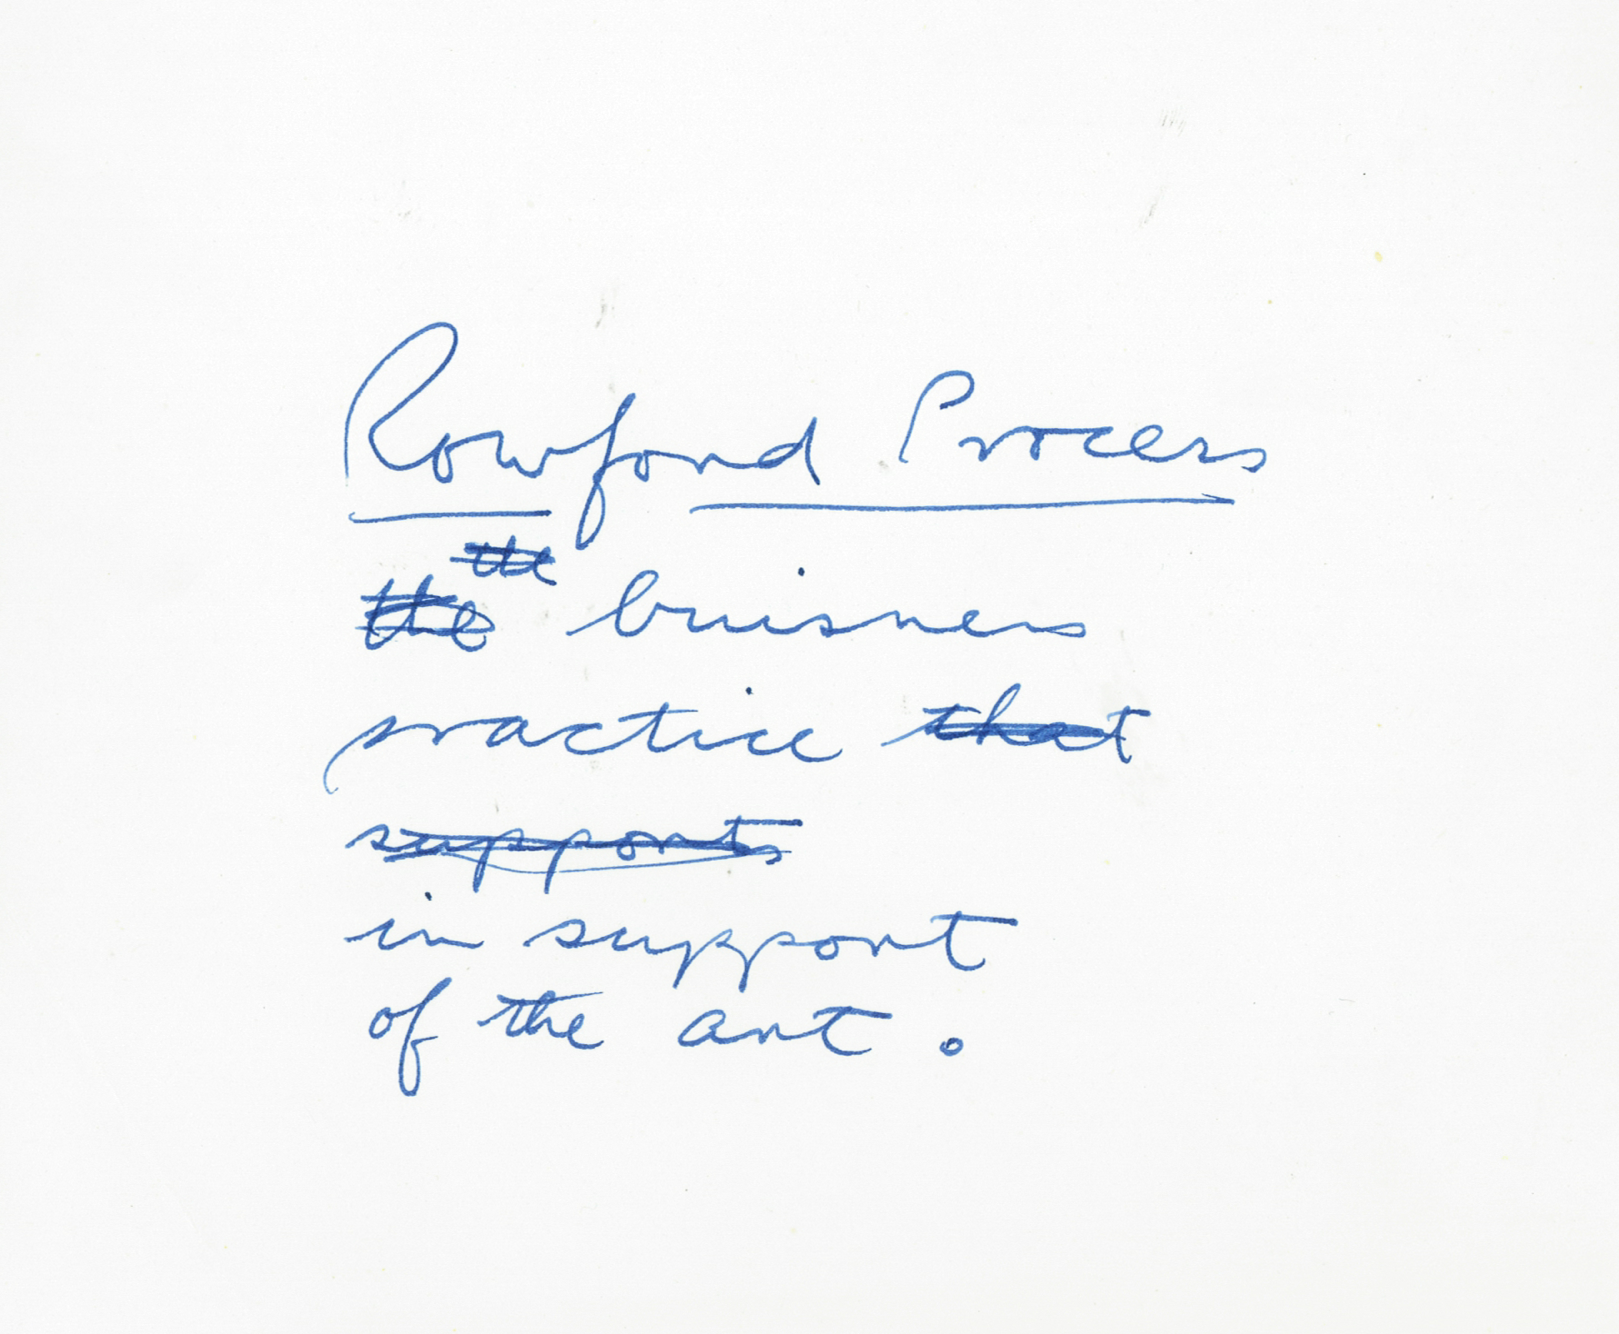 Rowford Process
the
the buisness
practice that
supports
in support
of the art.